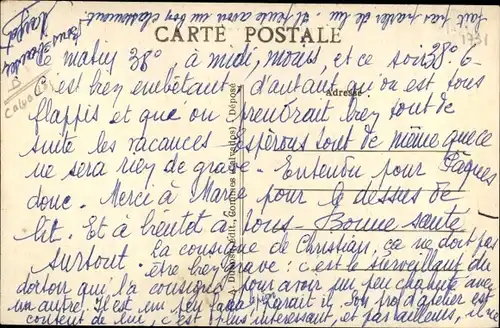 fait pas parler de lui. Il peut avoir un bon classement.
CARTE POSTALE
Adresse
ce matin 38°, à midi, moins, et ce soir 38° 6-
C'est bien embêtant, d'autant qu'on est tous
flappis et que on prendrait bien tout de
suite les vacances. Espérons tout de même que ce
ne sera rien de grave. Entendu pour Pâques
donc. Merci à Marie pour le dessus de
lit. Et à bientôt à tous. Bonne santé
surtout. La consigne de Christian, ça ne doit pas
être bien grave : c'est le surveillant du
dortoir qui l'a consigné pour avoir un peu chahuté avec
un autre. Il est un peu paraît il. Son prof d'atelier est
content de lui, c'est plus intéressant, et par ailleurs, il ne
édit., Gonneville (Calvados) (Déposé)
CALVADOS